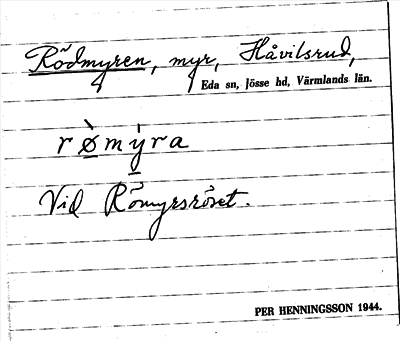 Rödmyren, myr, Håvilsrud,
Eda sn, Jösse hd, Värmlands län.
r ø̀ m ý r a
Vid Römyrsröset.
PER HENNINGSSON 1944.